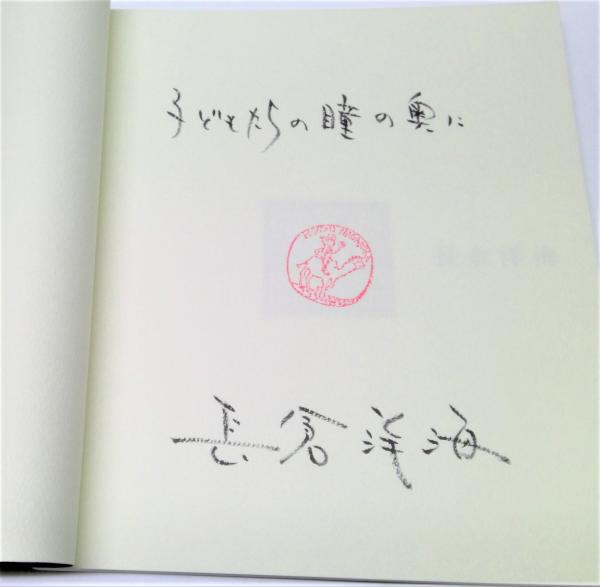 子どもたちの瞳の奥に
長倉洋海